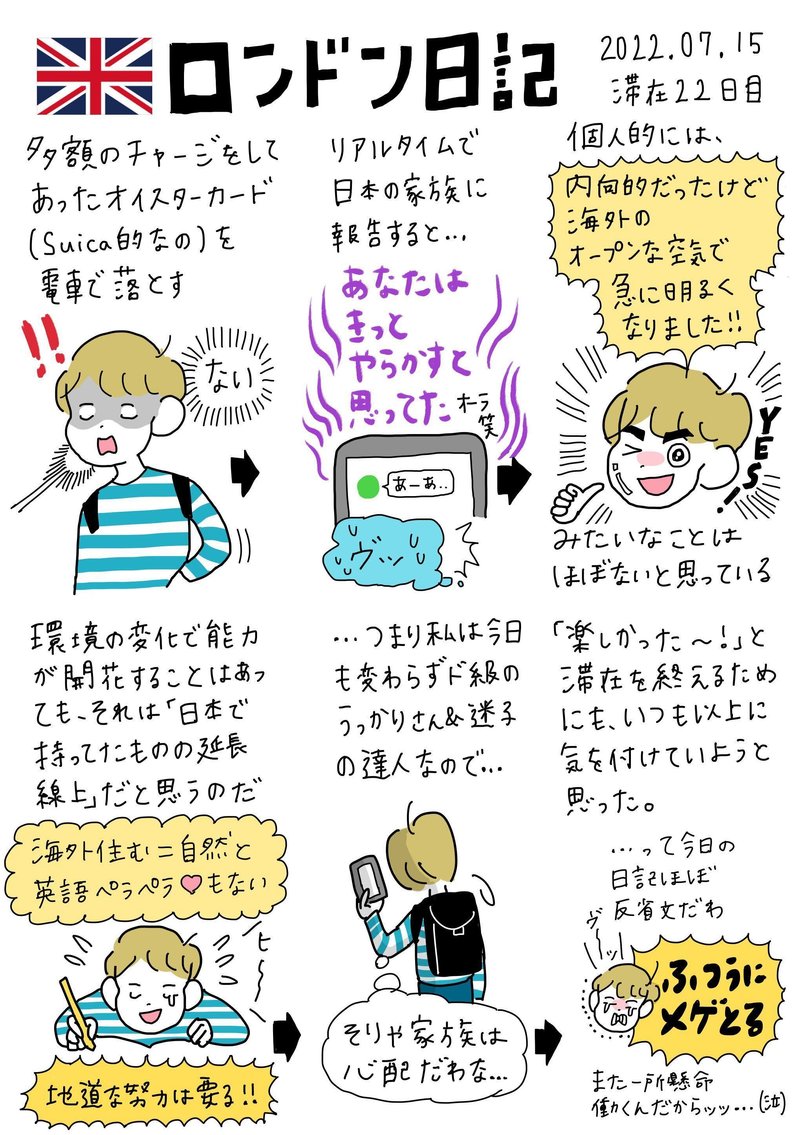 ロンドン日記
2022.07.15
滞在22日目
多額のチャージをして
あったオイスターカード
(Suica的なの)を
電車で落とす
!!
ない
リアルタイムで
日本の家族に
報告すると…
あなたは
きっと
やらかすと
思ってた
オーラ
笑
あーあ..
ヴッ
個人的には、
内向的だったけど
海外の
オープンな空気で
急に明るく
なりました!!
YES!
みたいなことは
ほぼないと思っている
環境の変化で能力
が開花することはあっ
ても、それは「日本で
持ってたものの延長
線上」だと思うのだ
海外住む=自然と
英語ペラペラ♡もない
ヒ〜〜
地道な努力は要る!!
…つまり私は今日
も変わらずド級の
うっかりさん&迷子
の達人なので…
そりゃ家族は
心配だわな…
「楽しかった〜!」と
滞在を終えるため
にも、いつも以上に
気を付けていようと
思った。
…って今日の
日記ほぼ
反省文だわ
ヴ〜ッ
ふつうに
メゲとる
また一所懸命
働くんだからッッ…(泣)